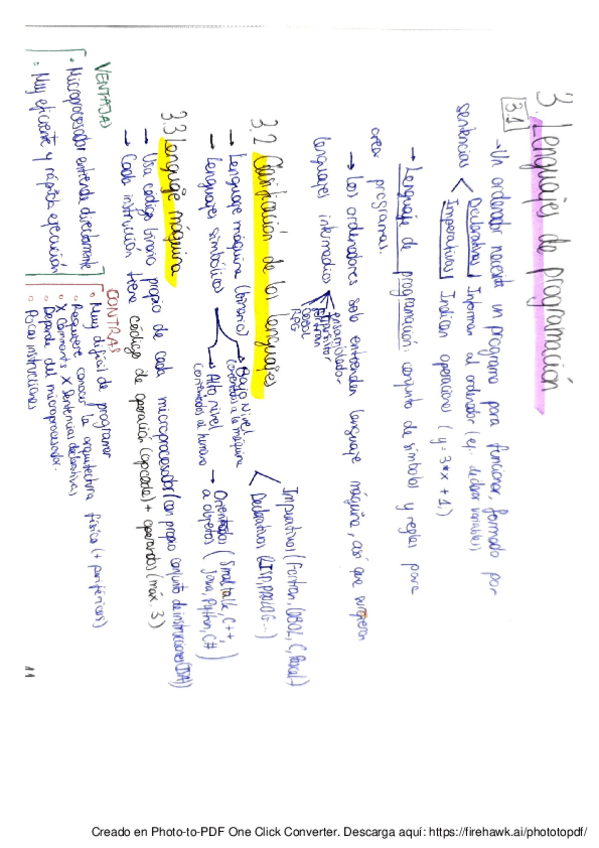 3. Lenguajes de programación
3.1
→ Un ordenador necesita un programa para funcionar formado por
sentencias < Declarativas | Informan al ordenador (ej. declarar variables)
Imperativas | Indican operaciones (y=3*x+1;)
→ Lenguaje de programación: conjunto de símbolos y reglas para
crear programas.
→ Los ordenadores solo entienden lenguaje máquina, así que surgieron
lenguajes intermedios
ensamblador
Fortran
Cobol
3.2 Clasificación de los lenguajes
→ Lenguaje máquina (binario)
→ Lenguajes simbólicos
Bajo nivel
(orientados a la máquina)
Alto nivel
(orientados al humano)
Imperativos (Fortran, COBOL, C, Pascal)
Declarativos (LISP, PROLOG...)
→ Orientados a objetos (Smalltalk, C++, Java, Python, C#)
3.3 Lenguaje máquina
→ Usa código binario propio de cada microprocesador (con propio conjunto de instrucciones (ISA))
→ Cada instrucción tiene código de operación (opcode) + operandos (máx. 3)
VENTAJAS
◦ Microprocesador entiende directamente
◦ Muy eficiente y rápida ejecución
CONTRAS
◦ Muy difícil de programar
◦ Requiere conocer la arquitectura física (+ periféricos)
◦ X Comments X Sentencias declarativas
◦ Depende del microprocesador
◦ Pocas instrucciones
11
Creado en Photo-to-PDF One Click Converter. Descarga aquí: https://firehawk.ai/phototopdf/